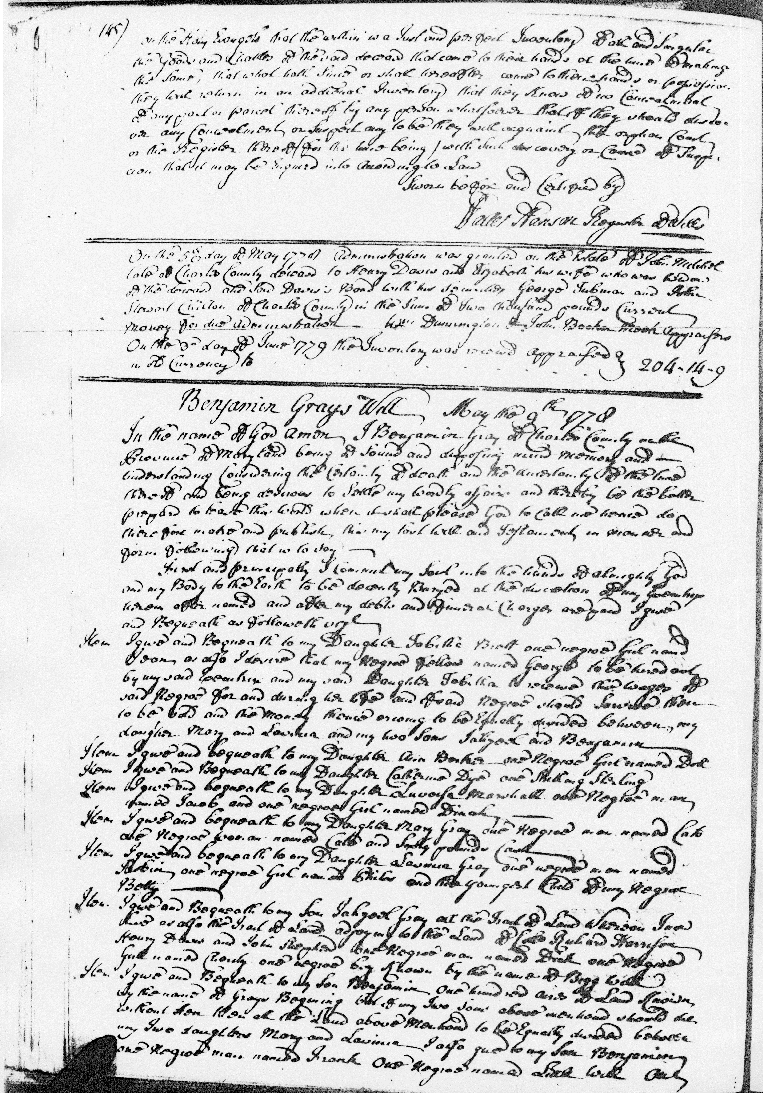 145)
on the Holy Evangels that the within is a Just and perfect Inventory of all and Singular
the Goods and Chattles of the said deceasd that came to their hands at the time of making
the same, that what hath since or shall hereafter come to their hands or possession
they will return in an additional Inventory that they know of no Concealment
of any part or parcel thereof by any person whatsoever that if they should disco-
ver any Concealment or suspect any to be they will acquaint the orphans Court
or the Register thereof for the time being with such discovery or Cause of Suspi-
cion that it may be Enquired into According to Law
Sworn before and Certified by
Hanson Register of Wills
On the day of May 1778 Administration was granted on the Estate of John Mitchel
late of Charles County deceasd to Henry Davis and Elizabeth his wife who was widow
of the deceasd and said Davis's Bond with his securities George Tubman and John
Stewart of Charles County in the Sum of two thousand pounds Current
Money for due Administration John Appraisers
On the day of June 1779 the Inventory was return'd appraised
in Currency to 204-14-9
Benjamin Grays Will May the 9th 1778
In the name of God Amen I Benjamin Gray of Charles County in the
Province of Maryland being of Sound and disposing mind Memory and
Understanding Considering the Certainty of death and the uncertainty of the time
thereof and being desirous to Settle my worldly affairs and thereby be the better
prepard to leave this world when it shall please God to Call me hence do
therefore make and publish this my last Will and Testament in manner and
form following that is to say
First and principally I commit my Soul into the hands of almighty God
and my Body to the Earth to be decently Buryed at the discretion of my
herein after named and after my debts and funeral Charges are paid I give
and Bequeath as followeth
Item I give and Bequeath to my Daughter Tabitha Brett one negroe Girl named
as also I desire that my Negroe fellow named George to be hired out
by my said and my said Daughter Tabitha to receive the wages of
said Negroe for and during her life and if said Negroe should Survive then
to be sold and the Money thence arising to be Equally divided between my
daughter Mary and Lavinia and my two Sons and Benjamin
Item I give and bequeath to my Daughter Ann one Negroe Girl named Doll
Item I give and Bequeath to my Daughter Catherine Dye one Shilling Sterling
Item I give and bequeath to my Daughter Marshall one Negroe man
named Jacob and one negroe Girl named Dinah
Item I give and bequeath to my Daughter Mary Gray one Negroe man named Cato
one Negroe woman named and pounds Cash
Item I give and bequeath to my Daughter Lavinia Gray one negroe man named
one negroe Girl named Phillis and the youngest Child of my Negroe
Betty
Item I give and Bequeath to my Son Gray all the Tract of Land whereon I now
live as also the Tract of Land adjoyning to the Land of Richard Harrison
Henry Davis and John Shepherd one Negroe man named Dick one Negroe
Girl named Charity one negroe boy known by the name of Bigg Will
Item I give and Bequeath to my Son Benjamin One hundred acres of Land known
by the name of Grays Beginning but if my Two Sons above mentioned should die
without Heir then all the Land above Mentioned to be Equally divided between
my Two daughters Mary and Lavinia I also give to my Son Benjamin
one Negroe man named Frank One Negroe named Little Will One